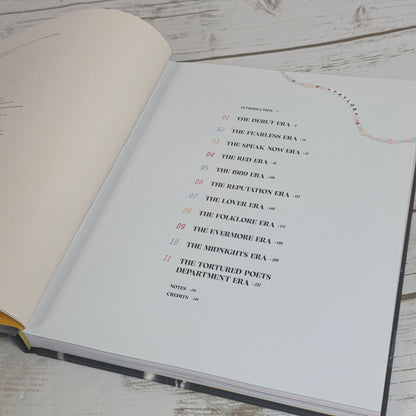 TAYLOR
INTRODUCTION
01 THE DEBUT ERA
02 THE FEARLESS ERA
03 THE SPEAK NOW ERA
04 THE RED ERA
05 THE 1989 ERA
06 THE REPUTATION ERA
07 THE LOVER ERA
08 THE FOLKLORE ERA
09 THE EVERMORE ERA
10 THE MIDNIGHTS ERA
11 THE TORTURED POETS
DEPARTMENT ERA
NOTES
CREDITS